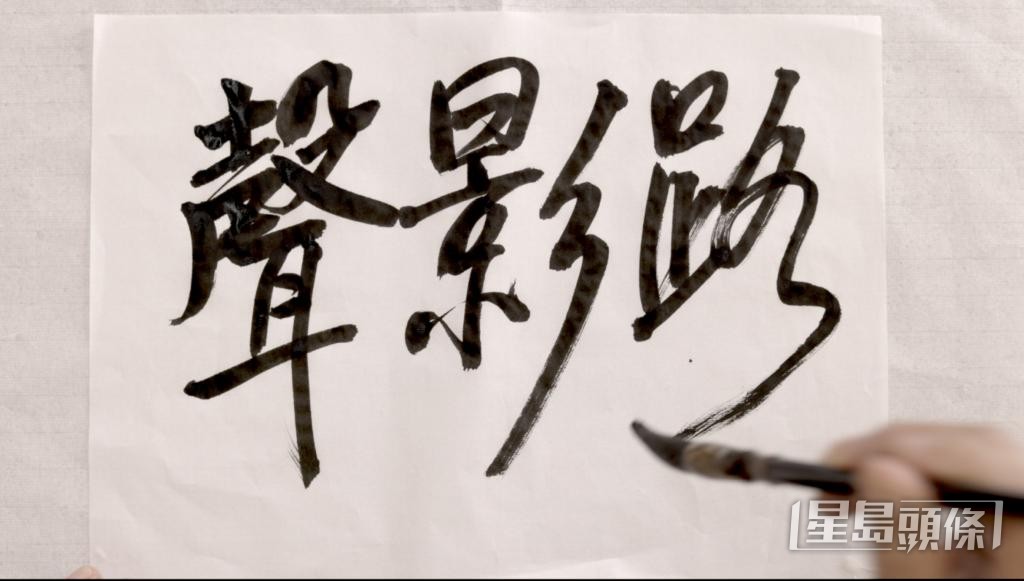 聲影路
星島頭條